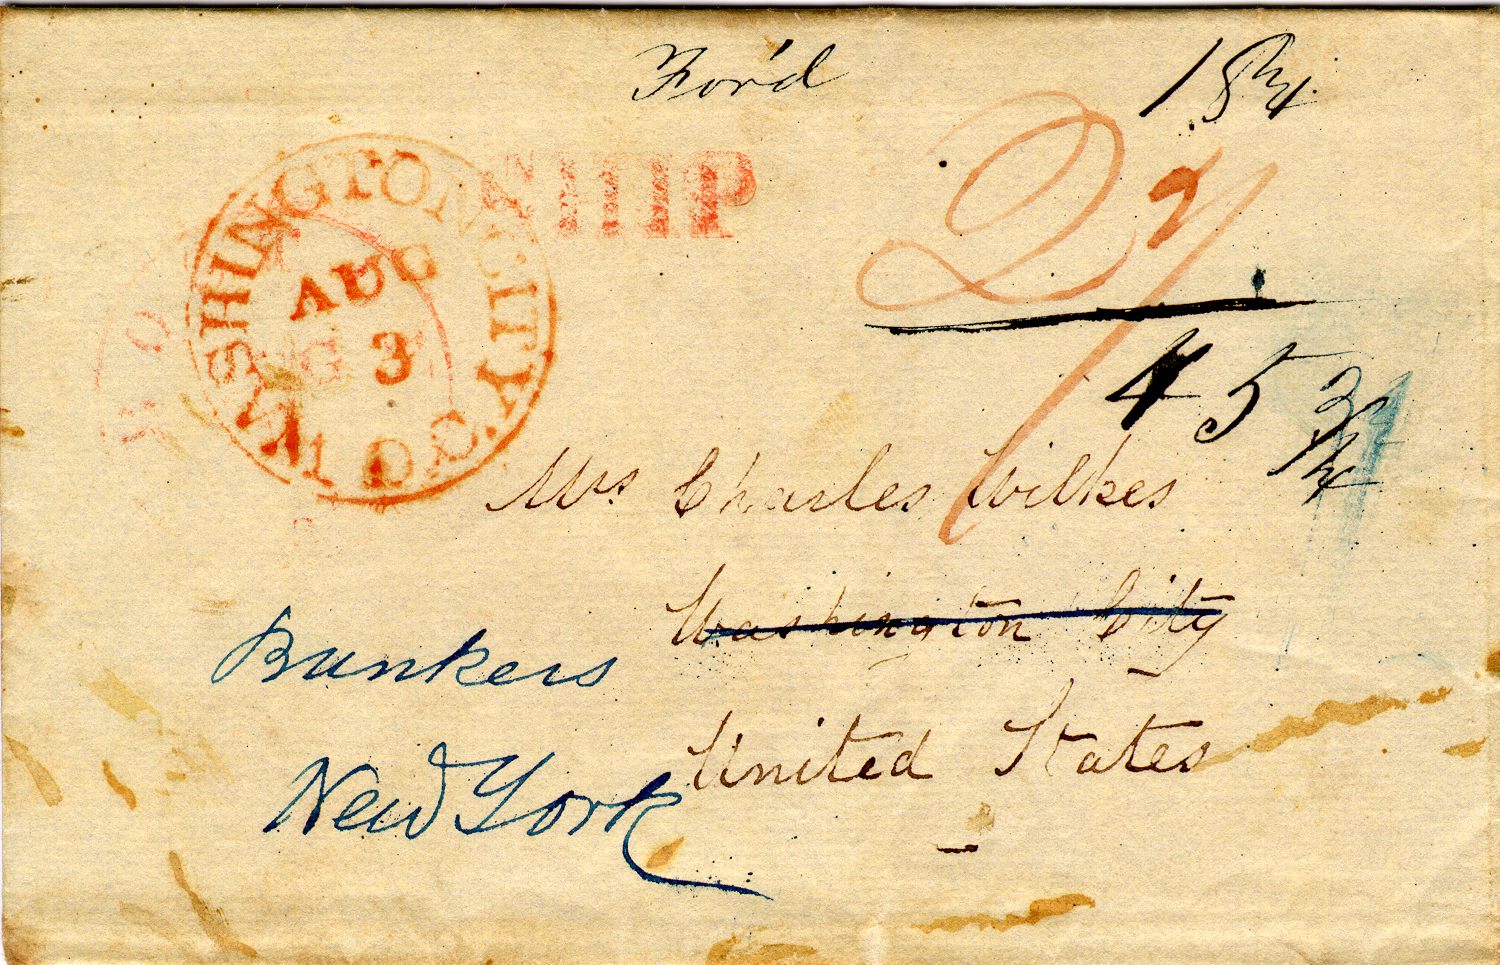 For'd
18 3/4
SHIP
27
WASHINGTON CITY D.C.
AUG
3
45 3/4
Mrs. Charles Wilkes
Washington City
United States
Bunkers
New York